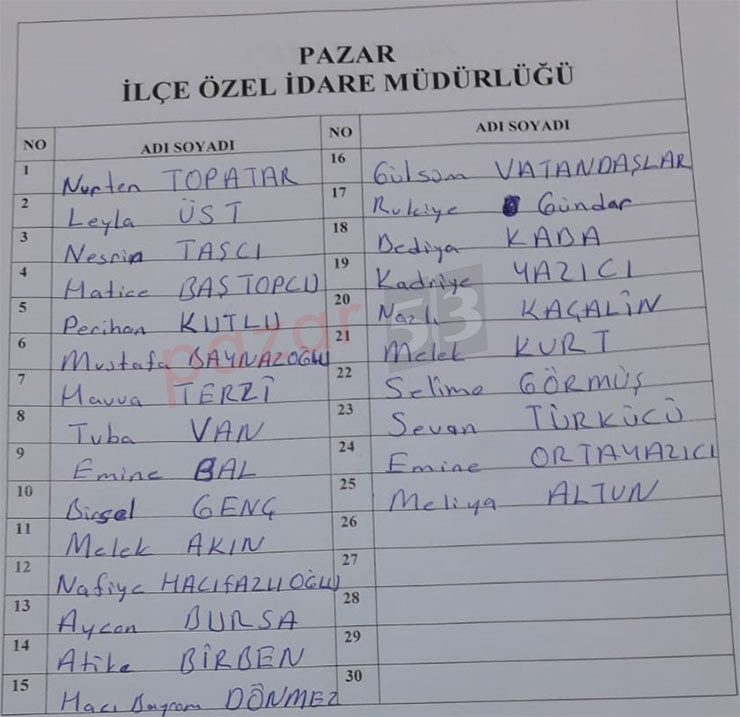 PAZAR
İLÇE ÖZEL İDARE MÜDÜRLÜĞÜ
NO ADI SOYADI
1 Nurten TOPATAR
2 Leyla ÜST
3 Nesrin TAŞCI
4 Hatice BAŞTOPCU
5 Perihan KUTLU
6 Mustafa BAYNAZOĞLU
7 Havva TERZİ
8 Tuba VAN
9 Emine BAL
10 Birsel GENÇ
11 Melek AKIN
12 Nafiye HACIFAZLIOĞLU
13 Aycan BURSA
14 Atike BİRBEN
15 Hacı Bayram DÖNMEZ
NO ADI SOYADI
16 Gülsüm VATANDAŞLAR
17 Rukiye Gündar
18 Bediya KABA
19 Kadriye YAZICI
20 Nazlı KAÇALİN
21 Melek KURT
22 Selime GÖRMÜŞ
23 Sevan TÜRKÜCÜ
24 Emine ORTAYAZICI
25 Meliya ALTUN
26
27
28
29
30
pazar 53